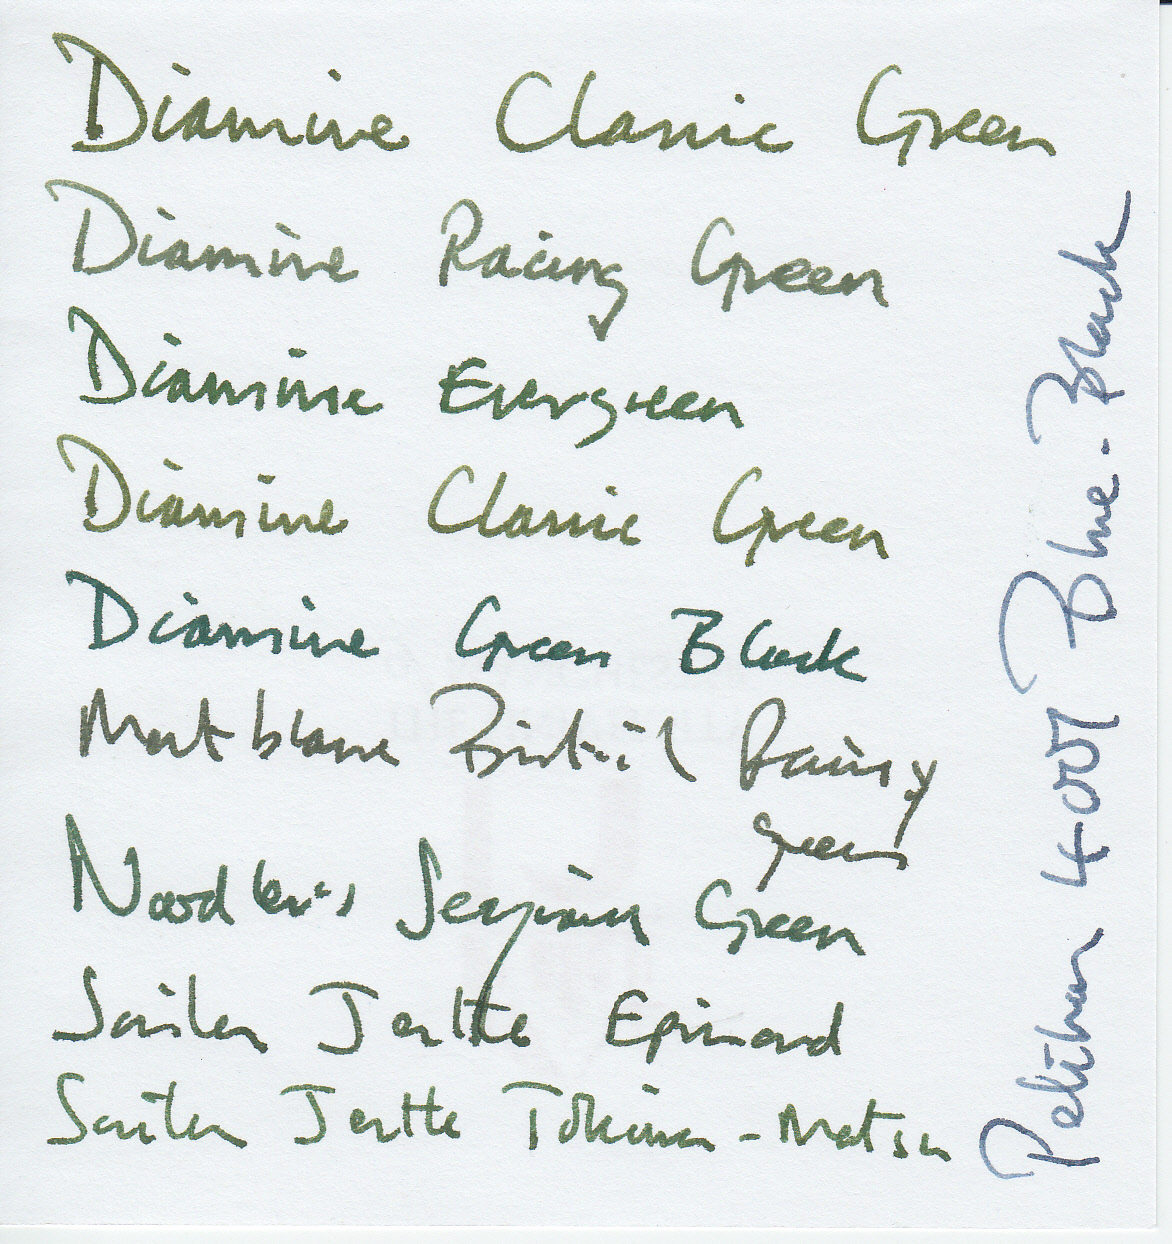 Diamine Classic Green
Diamine Racing Green
Diamine Evergreen
Diamine Classic Green
Diamine Green Black
Montblanc British Racing
Green
Noodler's Sequoia Green
Sailor Jentle Epinard
Sailor Jentle Tokiwa-Matsu
Pelikan 4001 Blue-Black